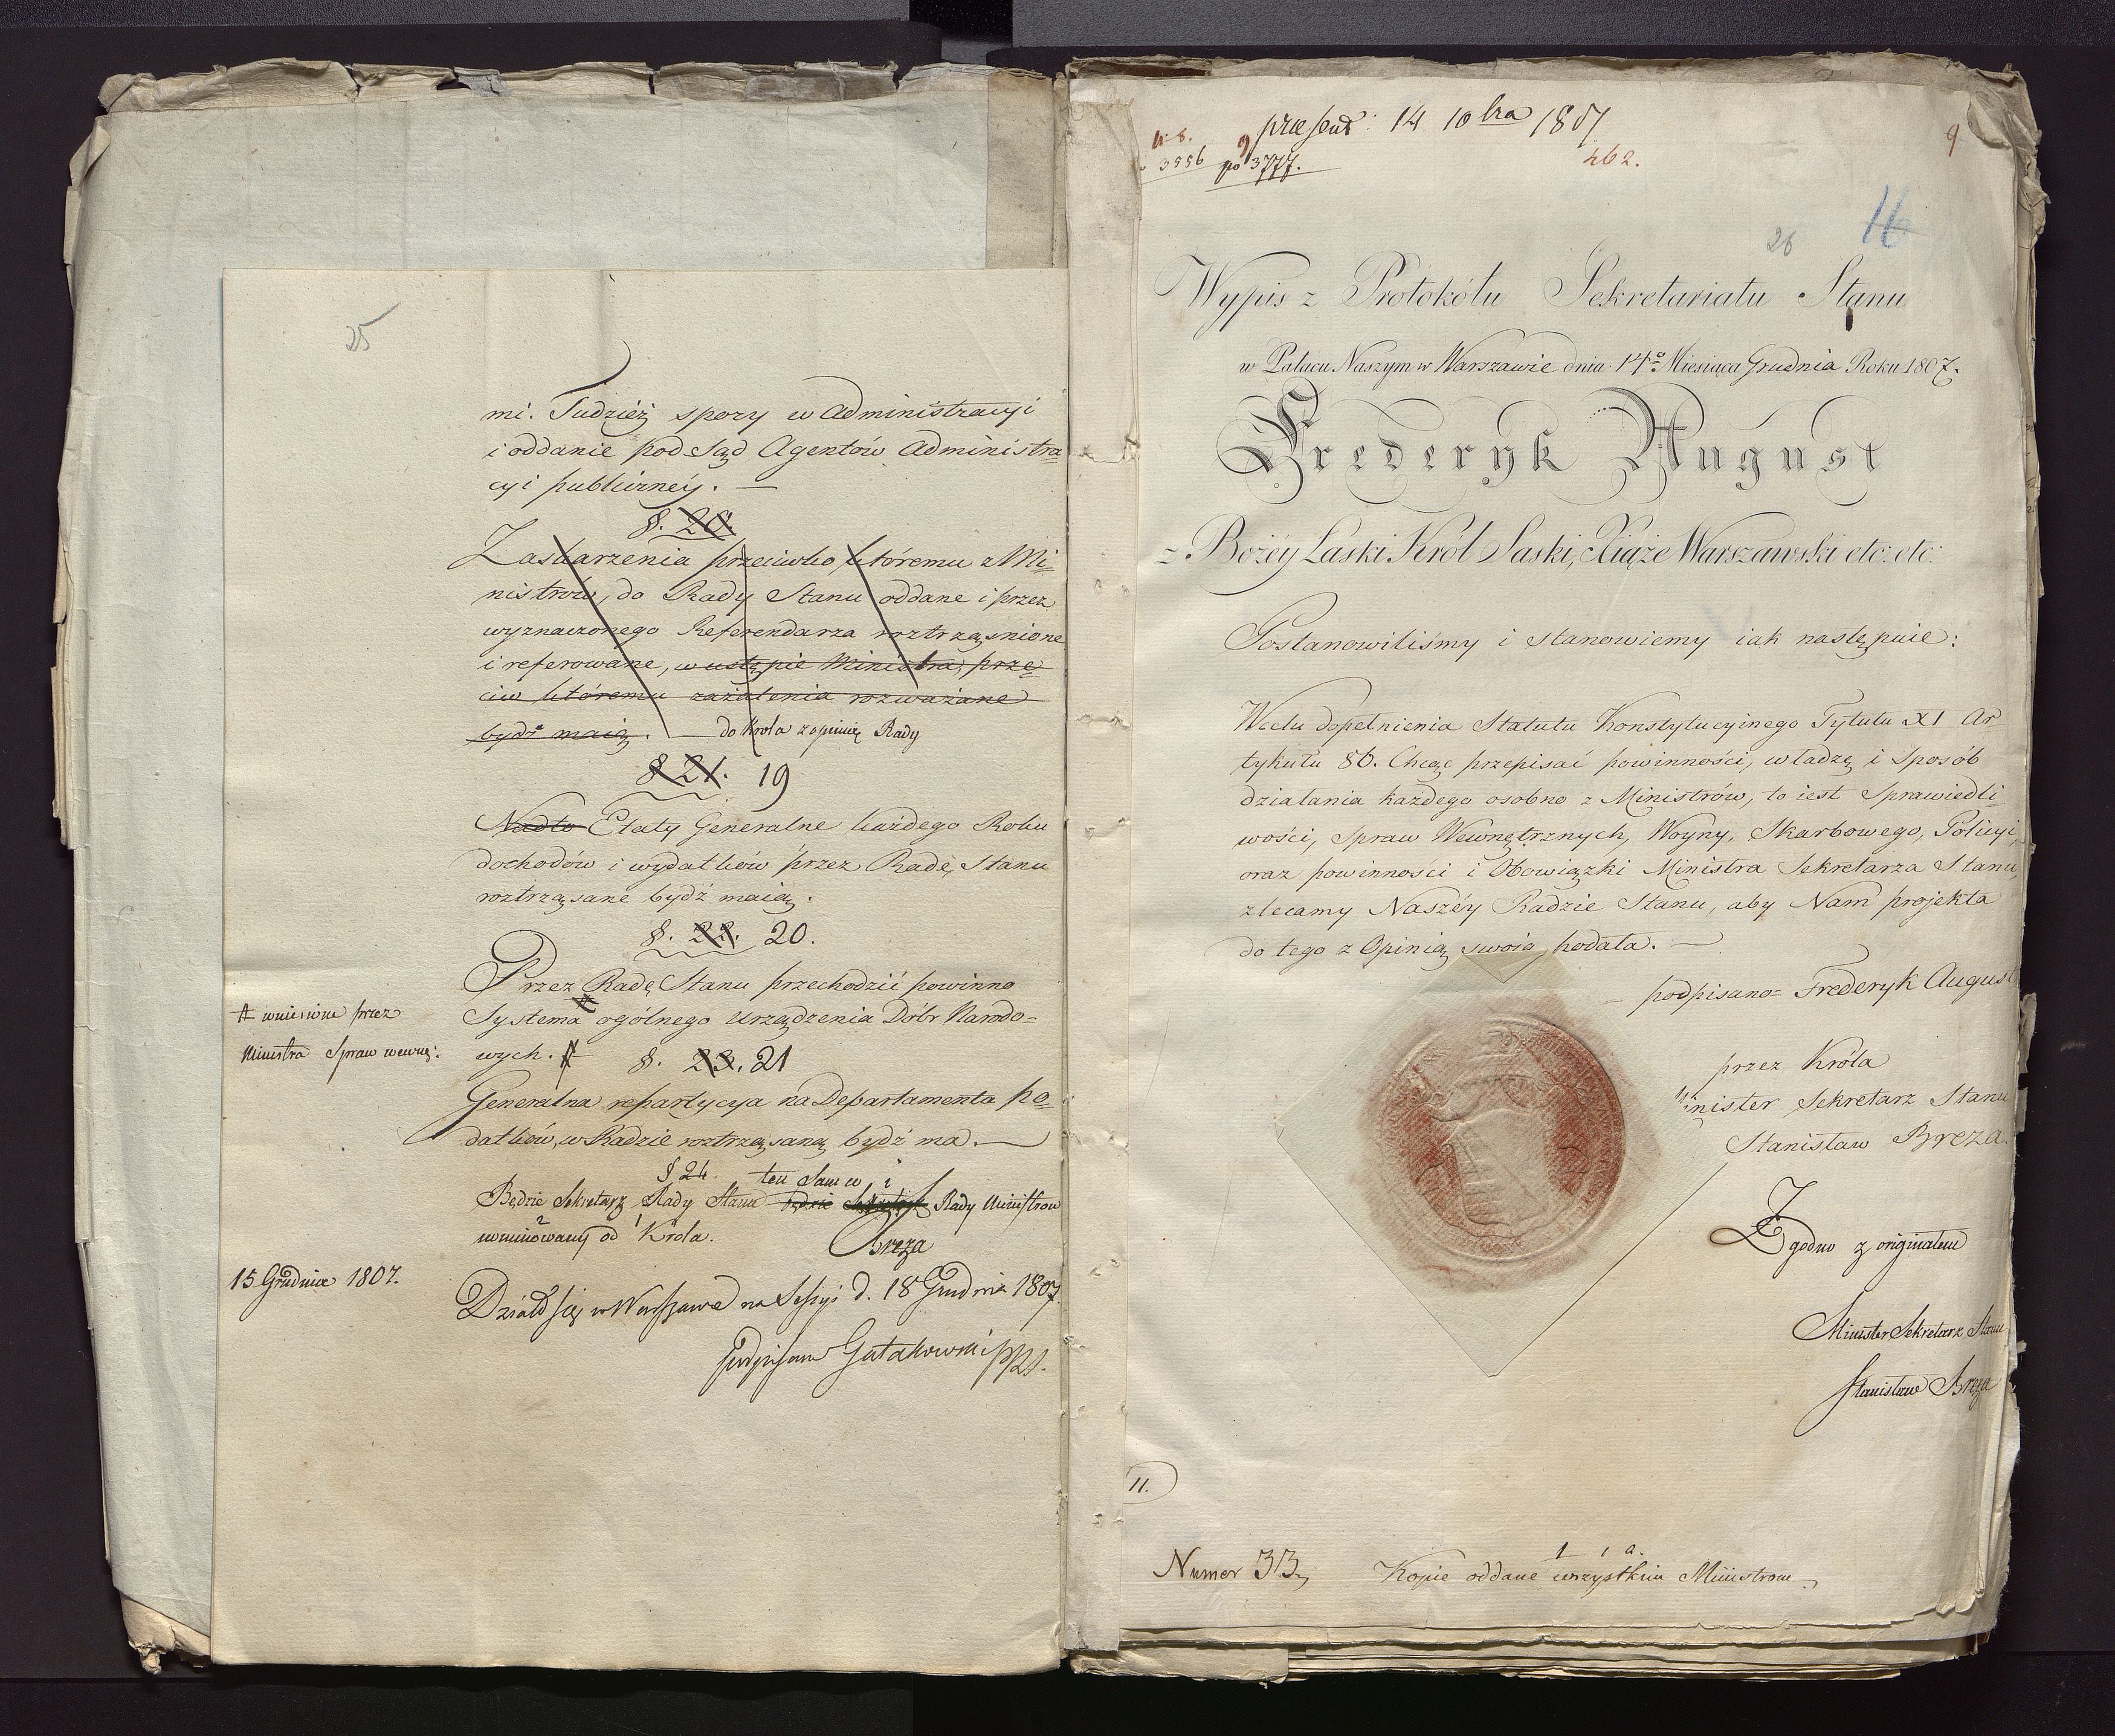 25
mi. Tudzież spory w Administracyi
i oddanie pod Sąd Agentów Administra=
cyi publiczney. —
§. 20.
Zaskarzenia przeciwko któremu z Mi=
nistrów, do Rady Stanu oddane i przez
wyznaczonego Referendarza roztrząsnione
i referowane, w ustępie Ministra, prze=
ciw któremu zażalenia rozważane
bydź maią. — do Krola z opinią Rady
§ 21. 19
Nadto Etaty Generalne każdego Roku
dochodów i wydatków przez Radę Stanu
roztrząsane bydź maią.
§. 22. 20.
Przez Radę Stanu przechodzić powinno
Systema ogólnego Urządzenia Dóbr Narodo=
wych. #
# wniesione przez
Ministra Spraw wewnę:
§. 23. 21
Generalna repartycya na Departamenta po=
datków, w Radzie roztrząsaną bydź ma. —
§ 24. ten sam w i
Będzie Sekretarz Rady Stanu będzie Rady Ministrow
2 1
nominowany od Króla.
Breza
15 Grudnia 1807.
Działo się w Warszawie na Sessyi d. 18 Grudnia 1807.
podpisano Gutakowski PRS.
praesent: 14 10bra 1807
3556 po 3777.
462.
9
16
26
Wypis z Protokółu Sekretariatu Stanu
w Pałacu Naszym w Warszawie dnia 14º Miesiąca Grudnia Roku 1807.
Fryderyk August
z Bożéy Łaski Król Saski, Xiąże Warszawski etc: etc:
Postanowiliśmy i stanowiemy iak następuie:
Wcelu dopełnienia Statutu Konstytucyinego Tytułu XI Ar=
tykułu 86. Chcąc przepisać powinności, władzę i sposób
działania każdego osobno z Ministrów, to iest Sprawiedli=
wości, Spraw Wewnętrznych, Woyny, Skarbowego, Policyi,
oraz powinnosci i Obowiązki Ministra Sekretarza Stanu,
zlecamy Naszéy Radzie Stanu, aby Nam projekta
do tego z Opinią swoią podała. —
— podpisano= Frederyk August
przez Króla
Minister Sekretarz Stanu
Stanisław Breza.
Zgodno z originałem
Minister Sekretarz Stanu
Stanisław Breza
11.
Numer 33,
1 1 a.
Kopie oddane wszystkim Ministrom